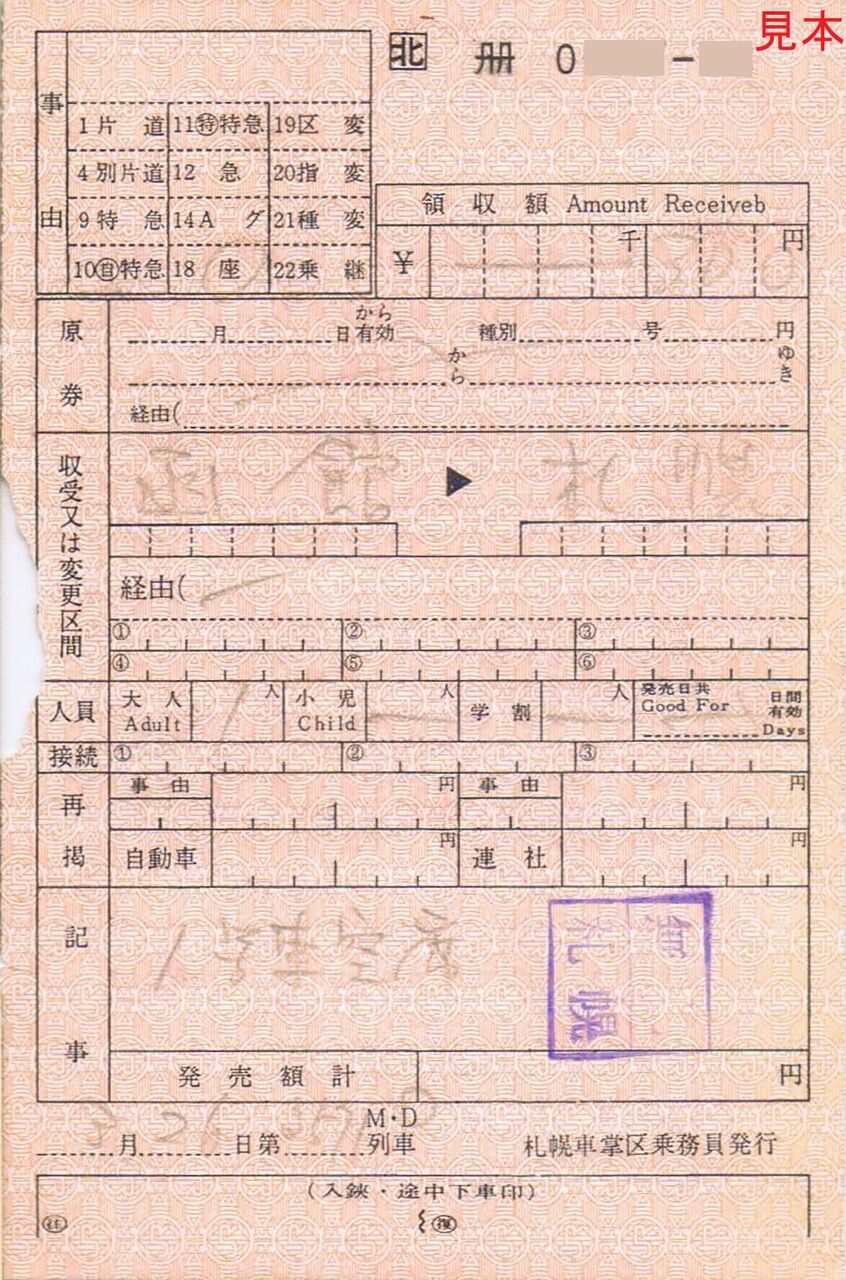 見本
北 册 0 -
事由
1片道 11特特急 19区変
4別片道 12急 20指変
9特急 14Aグ 21種変
10自特急 18座 22乗継
領収額 Amount Receiveb
￥ 千 円
原券
月 日から有効 種別 号 円
から ゆき
経由(
収受又は変更区間
函館 ▶ 札幌
経由(
① ② ③
④ ⑤ ⑥
人員 大人 Adult 1人 小児 Child 人 学割 人 発売日共 Good For 日間有効 Days
接続 ① ② ③
再掲
事由 円 事由 円
自動車 円 連社 円
記事
1号車空席
無
札幌
発売額計 円
M・D
月 日第 列車 札幌車掌区乗務員発行
(入鋏・途中下車印)
往 復